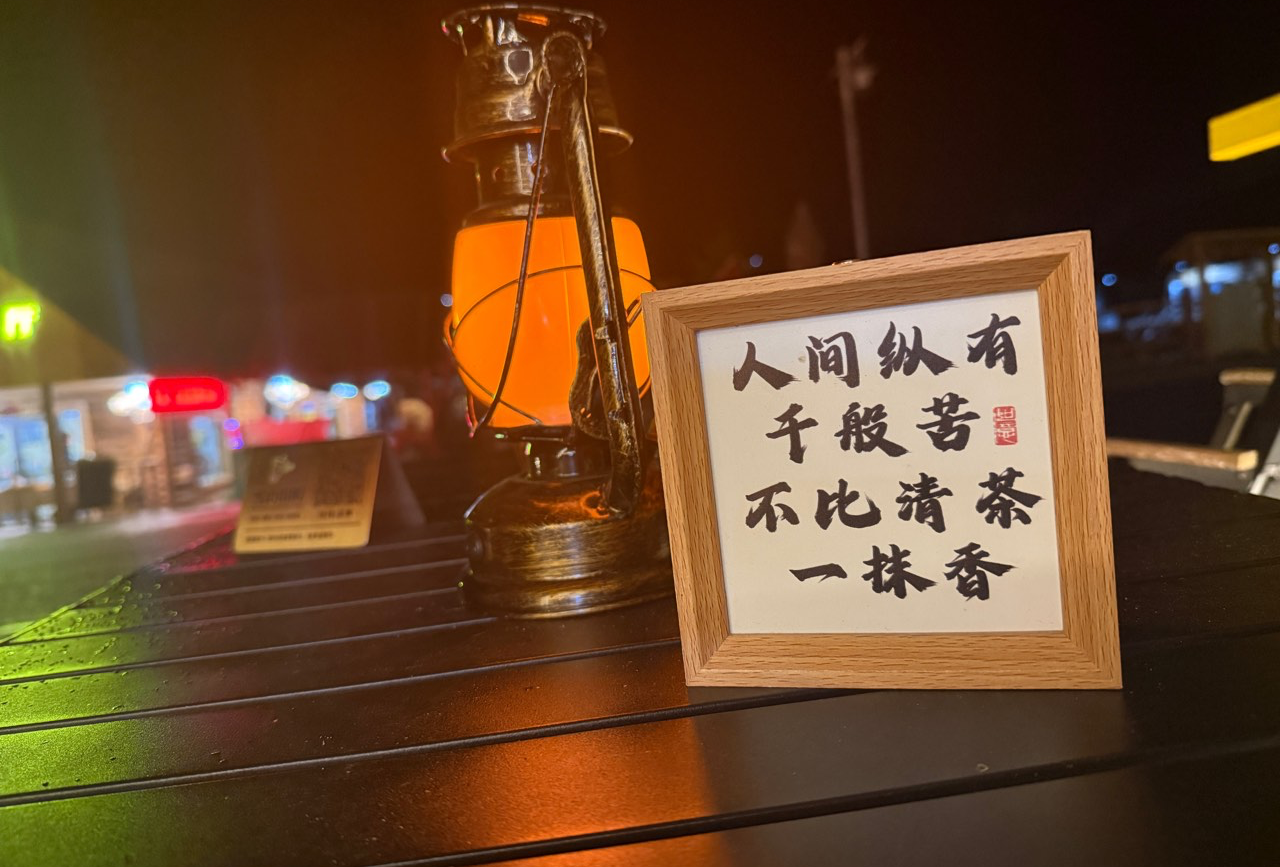 人间纵有
千般苦
不比清茶
一抹香